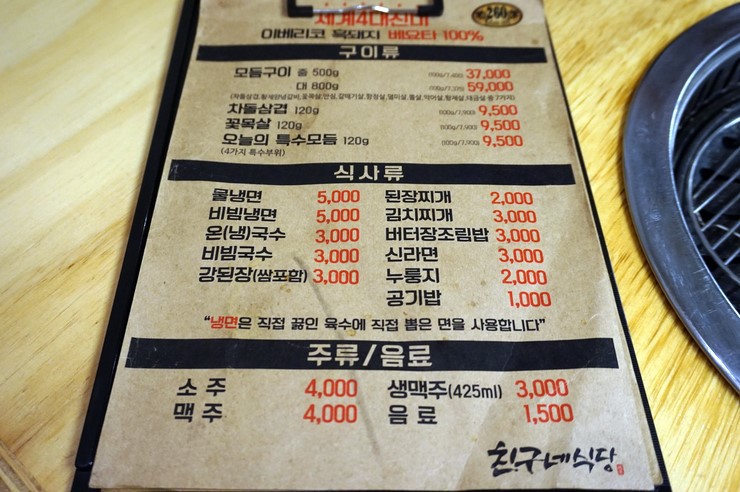 세계4대진미
260
이베리코 흑돼지 베요타 100%
구이류
모듬구이 중 500g (100g/7,400) 37,000
대 800g (100g/7,375) 59,000
차돌삼겹 120g (100g/7,900) 9,500
꽃목살 120g (100g/7,900) 9,500
오늘의 특수모듬 120g (100g/7,900) 9,500
(4가지 특수부위)
식사류
물냉면 5,000 된장찌개 2,000
비빔냉면 5,000 김치찌개 3,000
온(냉)국수 3,000 버터장조림밥 3,000
비빔국수 3,000 신라면 3,000
강된장(쌈포함) 3,000 누룽지 2,000
공기밥 1,000
"냉면은 직접 끓인 육수에 직접 뽑은 면을 사용합니다"
주류/음료
소주 4,000 생맥주(425ml) 3,000
맥주 4,000 음료 1,500
친구네식당